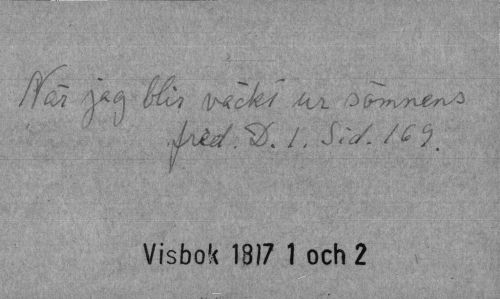 När jag blir väckt ur sömnens
frid. D. 1. Sid. 169.
Visbok 1817 1 och 2